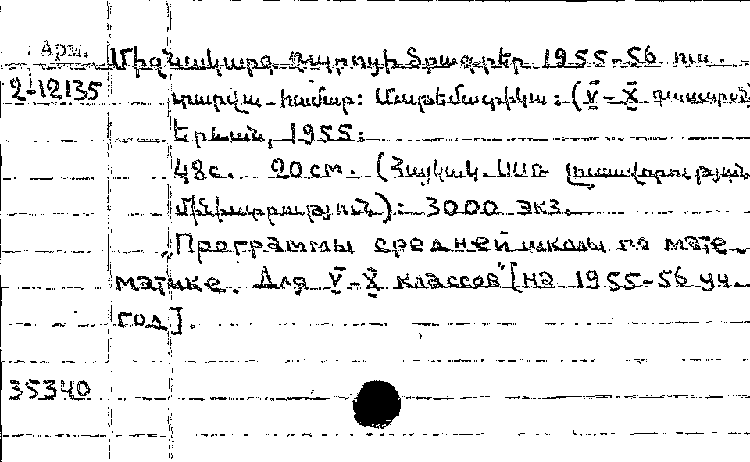 Арм. Միջնակարգ դպրոցի ծրագրեր 1955-56 ուս.
2-12135 տարվա համար: Մաթեմատիկա: (V-X դասարան)
Երևան, 1955:
48с. 20 см. (Հայկական ՍՍՌ լուսավորության
մինիստրություն): 3000 экз.
„Программы средней школы по мате-
матике. Для V-X классов" [на 1955-56 уч.
год].
35340